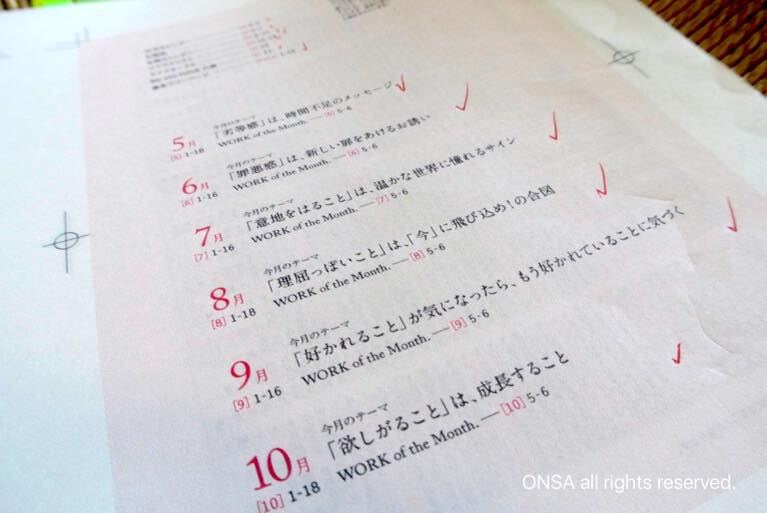 5月
[5] 1-18
今月のテーマ
「劣等感」は、時間不足のメッセージ
WORK of the Month. — [5] 5-6
6月
[6] 1-16
今月のテーマ
「罪悪感」は、新しい扉をあけるお誘い
WORK of the Month. — [6] 5-6
7月
[7] 1-16
今月のテーマ
「意地をはること」は、温かな世界に憧れるサイン
WORK of the Month. — [7] 5-6
8月
[8] 1-18
今月のテーマ
「理屈っぽいこと」は、「今」に飛び込め!の合図
WORK of the Month. — [8] 5-6
9月
[9] 1-16
今月のテーマ
「好かれること」が気になったら、もう好かれていることに気づく
WORK of the Month. — [9] 5-6
10月
[10] 1-18
今月のテーマ
「欲しがること」は、成長すること
WORK of the Month. — [10] 5-6
ONSA all rights reserved.